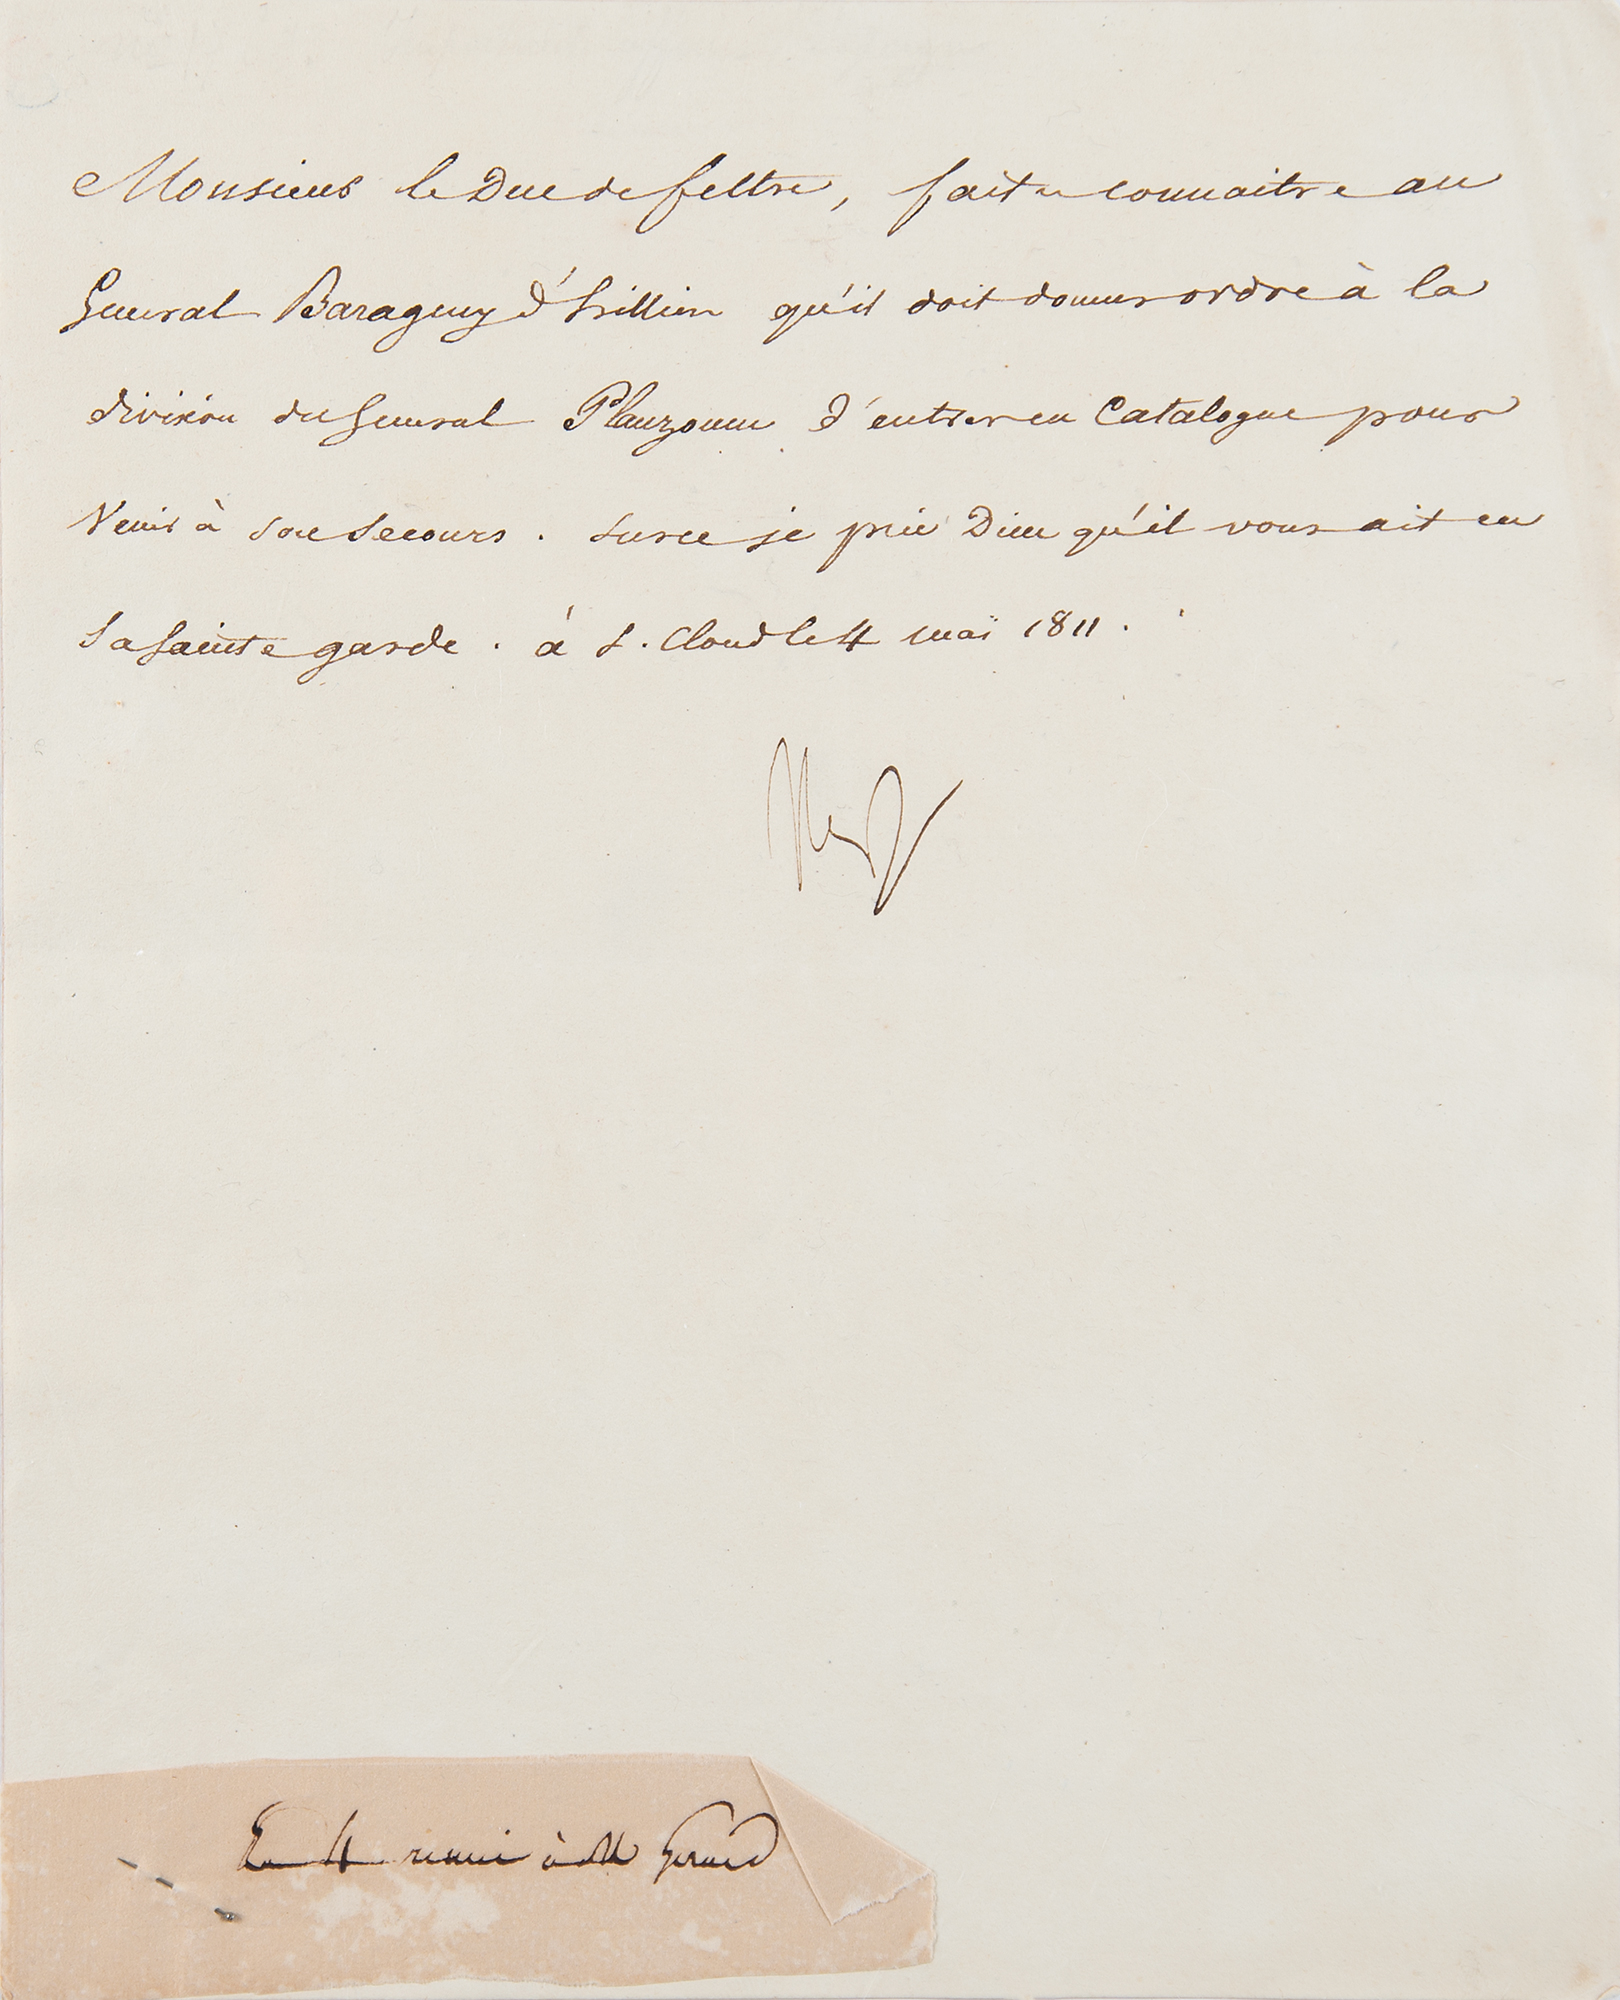 Monsieur le Duc de feltre, faites connaitre au
General Baraguey d'hillier qu'il doit donner ordre à la
division du General Plauzonne d'entrer en Catalogne pour
Venir à son Secours. Sur ce je prie Dieu qu'il vous ait en
Sa Sainte garde. à S. Cloud le 4 mai 1811.
Nap
Du 4 remis à M Gerard